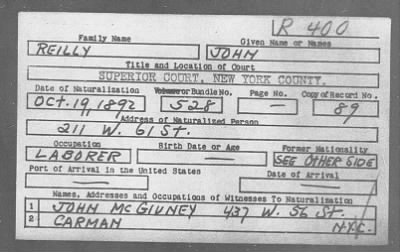 R 400
Family Name Given Name or Names
REILLY JOHN
Title and Location of Court
SUPERIOR COURT, NEW YORK COUNTY.
Date of Naturalization Volume or Bundle No. Page No. Copy of Record No.
OCT. 19, 1892 528 — 89
Address of Naturalized Person
211 W. 61 St.
Occupation Birth Date or Age Former Nationality
LABORER — SEE OTHER SIDE
Port of Arrival in the United States Date of Arrival
— —
Names, Addresses and Occupations of Witnesses To Naturalization
1 JOHN McGIVNEY 437 W. 56 St.
2 CARMAN N.Y.C.